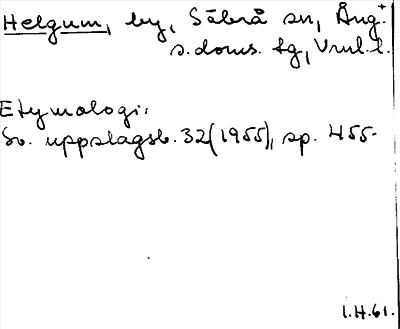 Helgum, by, Säbrå sn, Ång.+
s. doms. tg, Vrml. l.
Etymologi:
Sv. uppslagsb. 32 (1955), sp. 455.
I.H.61.